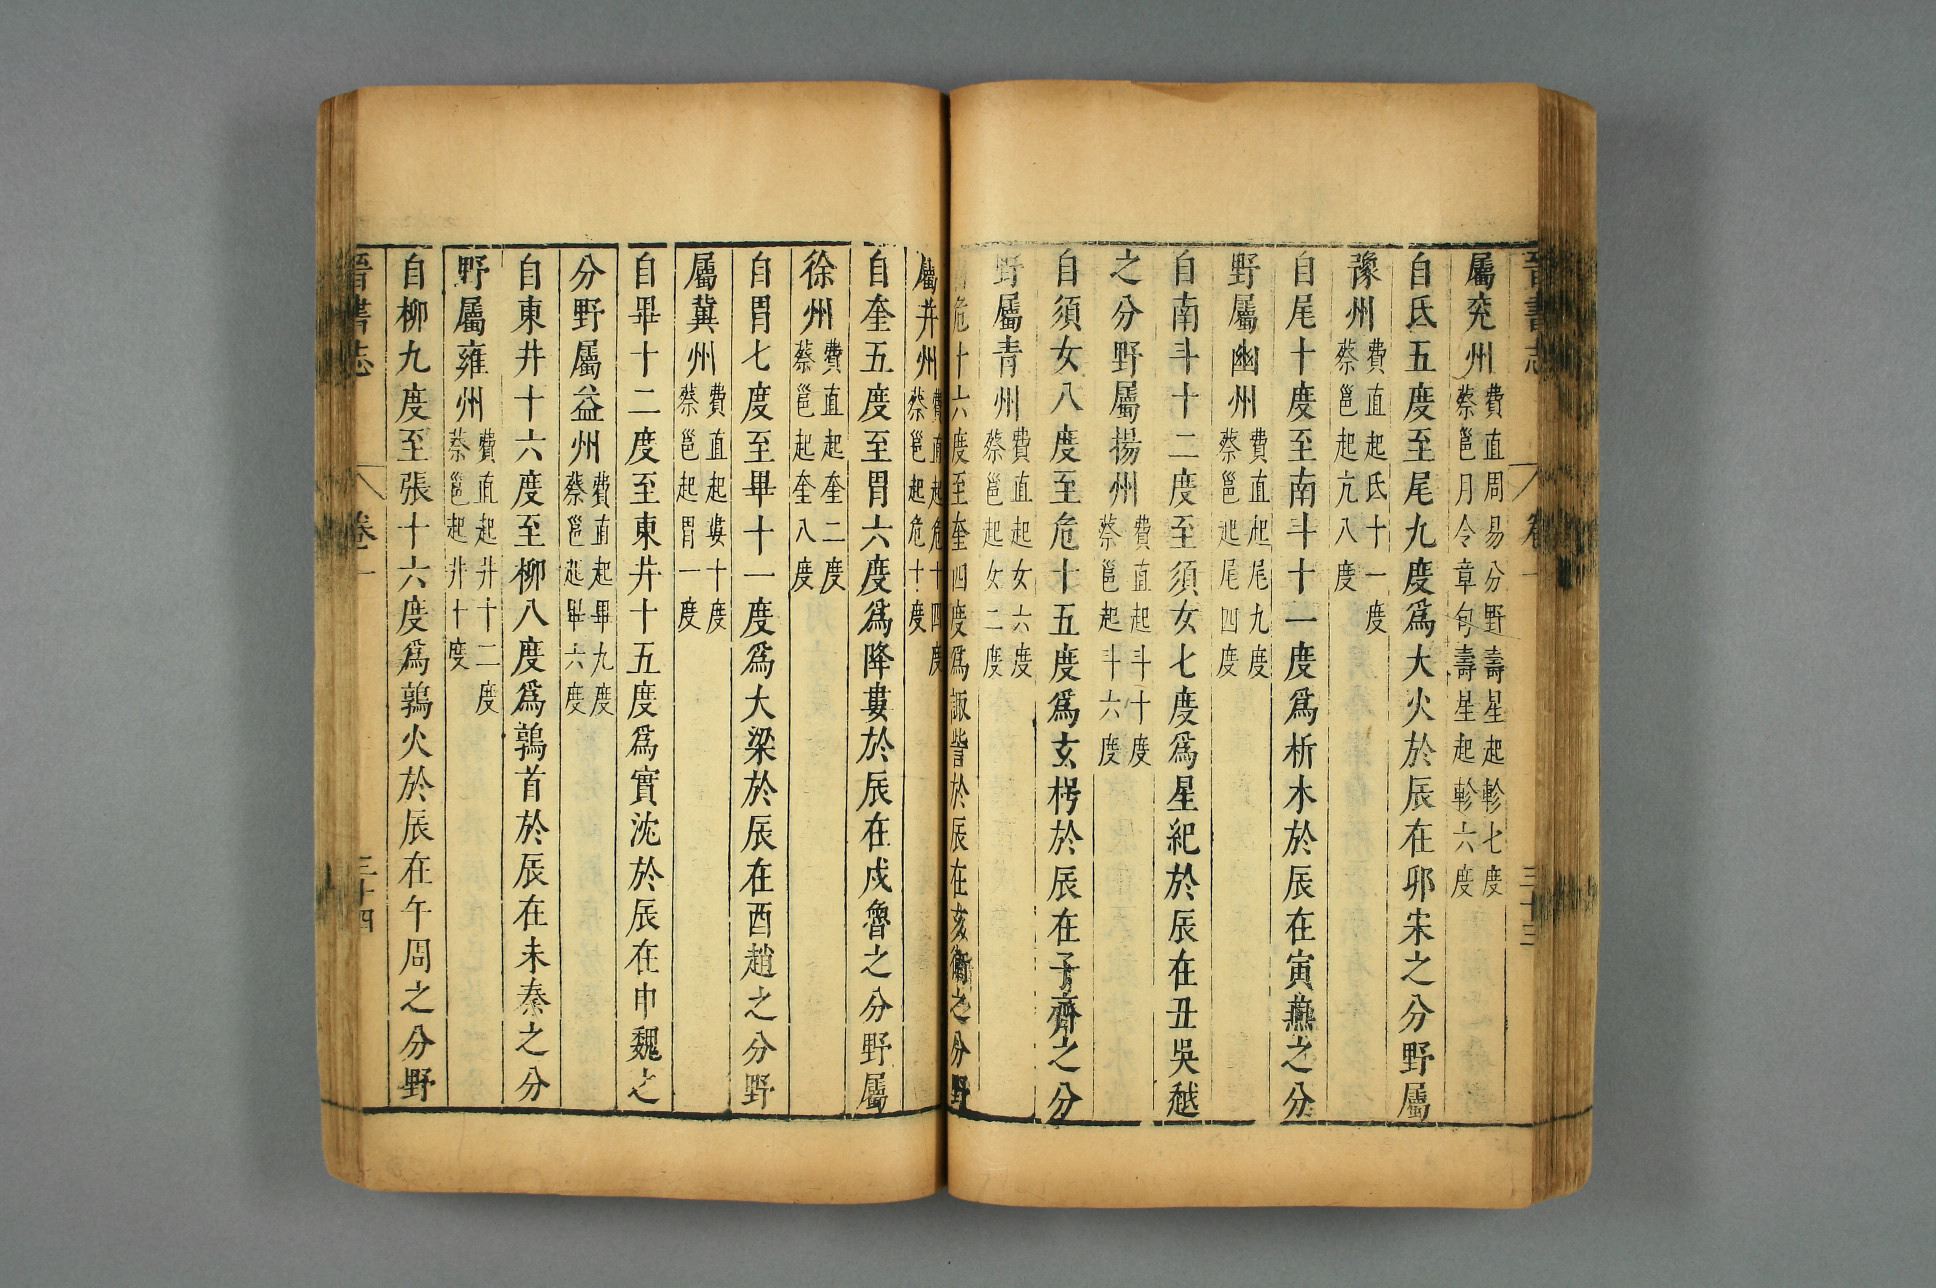 晉書志 卷一 三十三
屬兖州費直周易分野壽星起軫七度蔡邕月令章句壽星起軫六度
自氐五度至尾九度爲大火於辰在卯宋之分野屬
豫州費直起氐十一度蔡邕起亢八度
自尾十度至南斗十一度爲析木於辰在寅燕之分
野屬幽州費直起尾九度蔡邕起尾四度
自南斗十二度至須女七度爲星紀於辰在丑吳越
之分野屬揚州費直起斗十度蔡邕起斗六度
自須女八度至危十五度爲玄枵於辰在子齊之分
野屬青州費直起女六度蔡邕起女二度
危十六度至奎四度爲諏訾於辰在亥衛之分野
屬并州費直起危十四度蔡邕起危十度
自奎五度至胃六度爲降婁於辰在戍魯之分野屬
徐州費直起奎二度蔡邕起奎八度
自胃七度至畢十一度爲大梁於辰在酉趙之分野
屬冀州費直起婁十度蔡邕起胃一度
自畢十二度至東井十五度爲實沈於辰在申魏之
分野屬益州費直起畢九度蔡邕起畢六度
自東井十六度至柳八度爲鶉首於辰在未秦之分
野屬雍州費直起井十二度蔡邕起井十度
自柳九度至張十六度爲鶉火於辰在午周之分野
晉書志 卷一 三十四